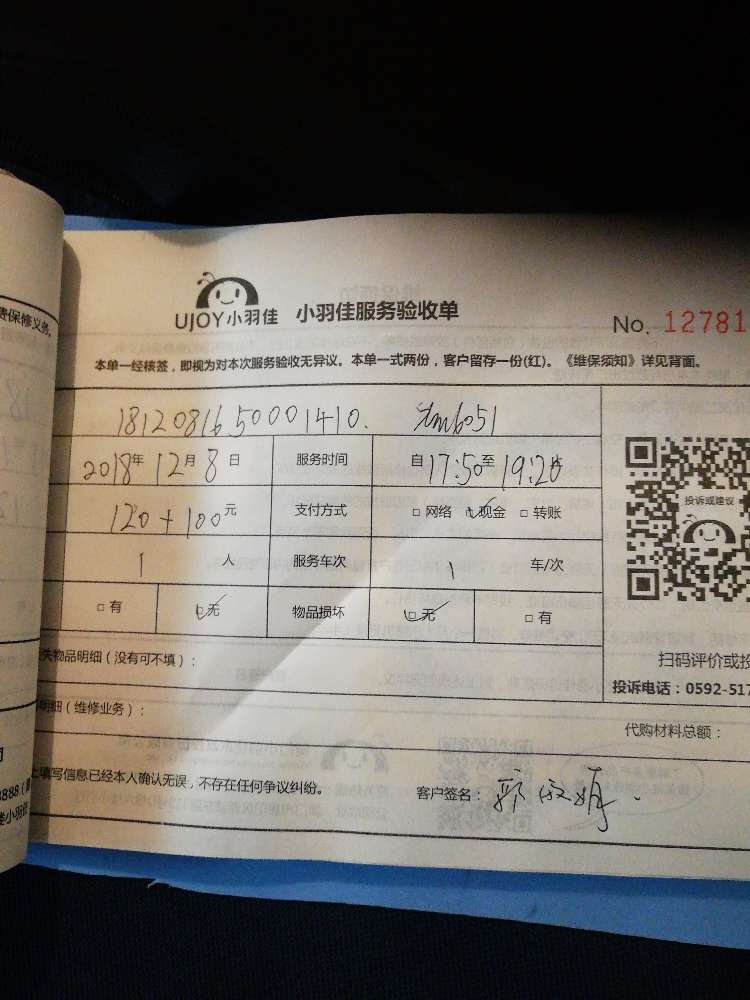 费保修义务。
UJOY小羽佳 小羽佳服务验收单
No. 12781
本单一经核签，即视为对本次服务验收无异议。本单一式两份，客户留存一份(红)。《维保须知》详见背面。
18120816500001410. xm6051
2018年12月8日 服务时间 自17:50至19:20
120+100元 支付方式 □网络 ☑现金 □转账
1人 服务车次 1 车/次
□有 ☑无 物品损坏 ☑无 □有
投诉或建议
失物品明细（没有可不填）：
扫码评价或投
投诉电话：0592-517
明细（维修业务）：
代购材料总额：
上填写信息已经本人确认无误，不存在任何争议纠纷。 客户签名：郭
司
8888
小羽佳